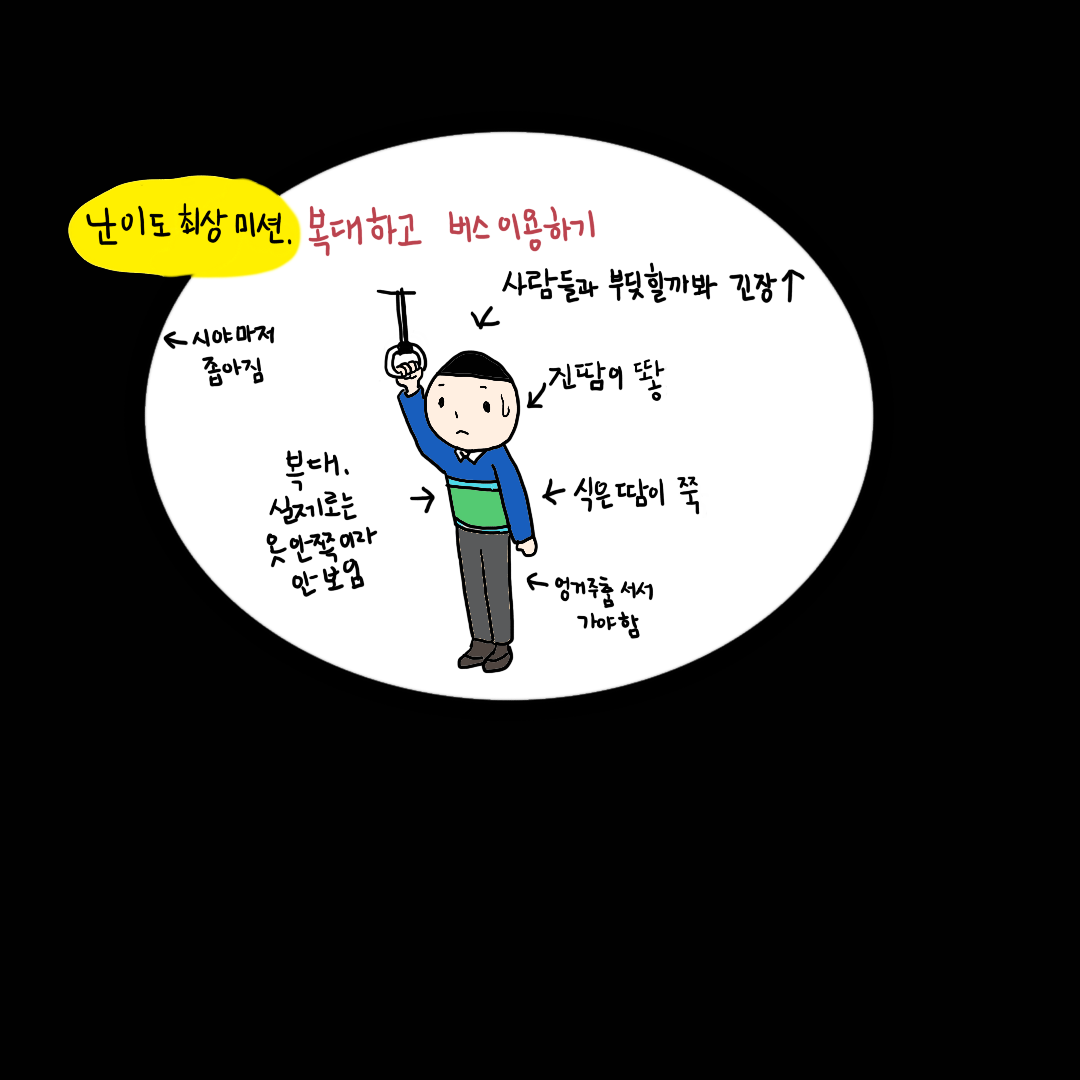 난이도 최상 미션. 복대하고 버스 이용하기
사람들과 부딪힐까봐 긴장↑
←시야마저
좁아짐
진땀이 똻
복대.
실제로는
옷 안쪽이라
안 보임
← 식은땀이 쭉
← 엉거주춤 서서
가야함